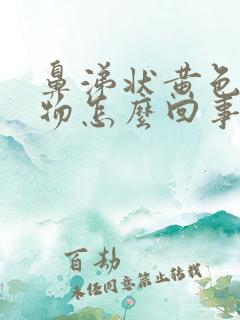 鼻涕状黄色
物怎麼回事
百劫
未经同意禁止转载